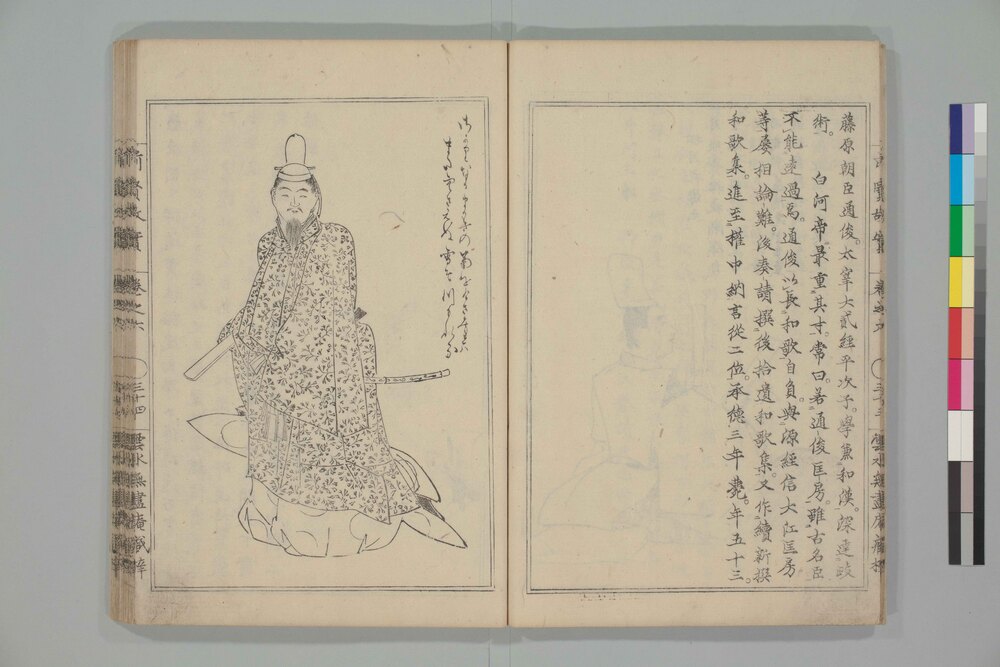 藤原朝臣通俊。太宰大貳經平次子。學兼和漢。深達政
術。　白河帝最重其才。常曰。若通俊匡房。雖古名臣
不能遠過焉。通俊以長和歌自負。與源經信大江匡房
等屡相論難。後奏請撰後拾遺和歌集。又作續新撰
和歌集。進至權中納言從二位。承徳三年薨。年五十三。
前賢故實 卷之六 三十四 雲水無盡庵藏梓